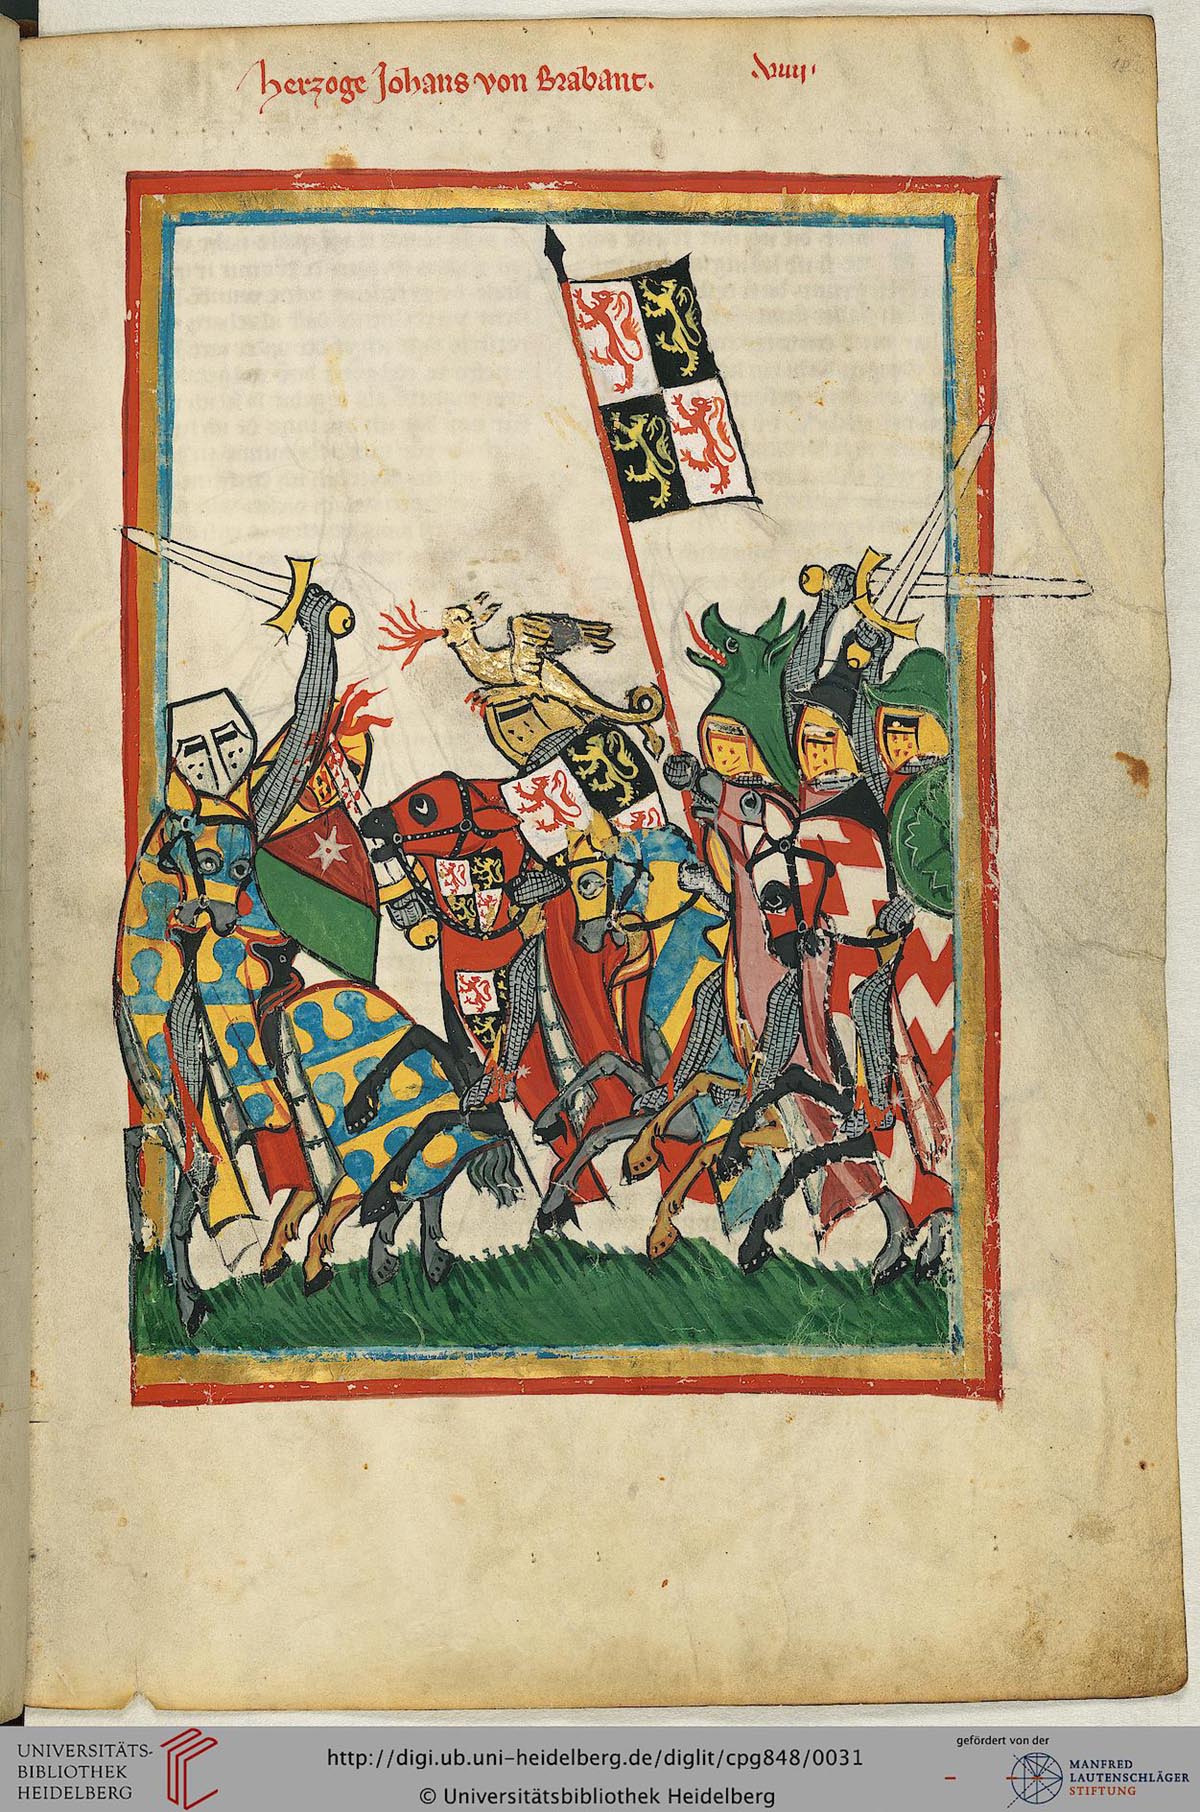 herzoge Johans von Brabant. xviij.
18
UNIVERSITÄTS-
BIBLIOTHEK
HEIDELBERG
http://digi.ub.uni-heidelberg.de/diglit/cpg848/0031
© Universitätsbibliothek Heidelberg
gefördert von der
MANFRED
LAUTENSCHLÄGER
STIFTUNG